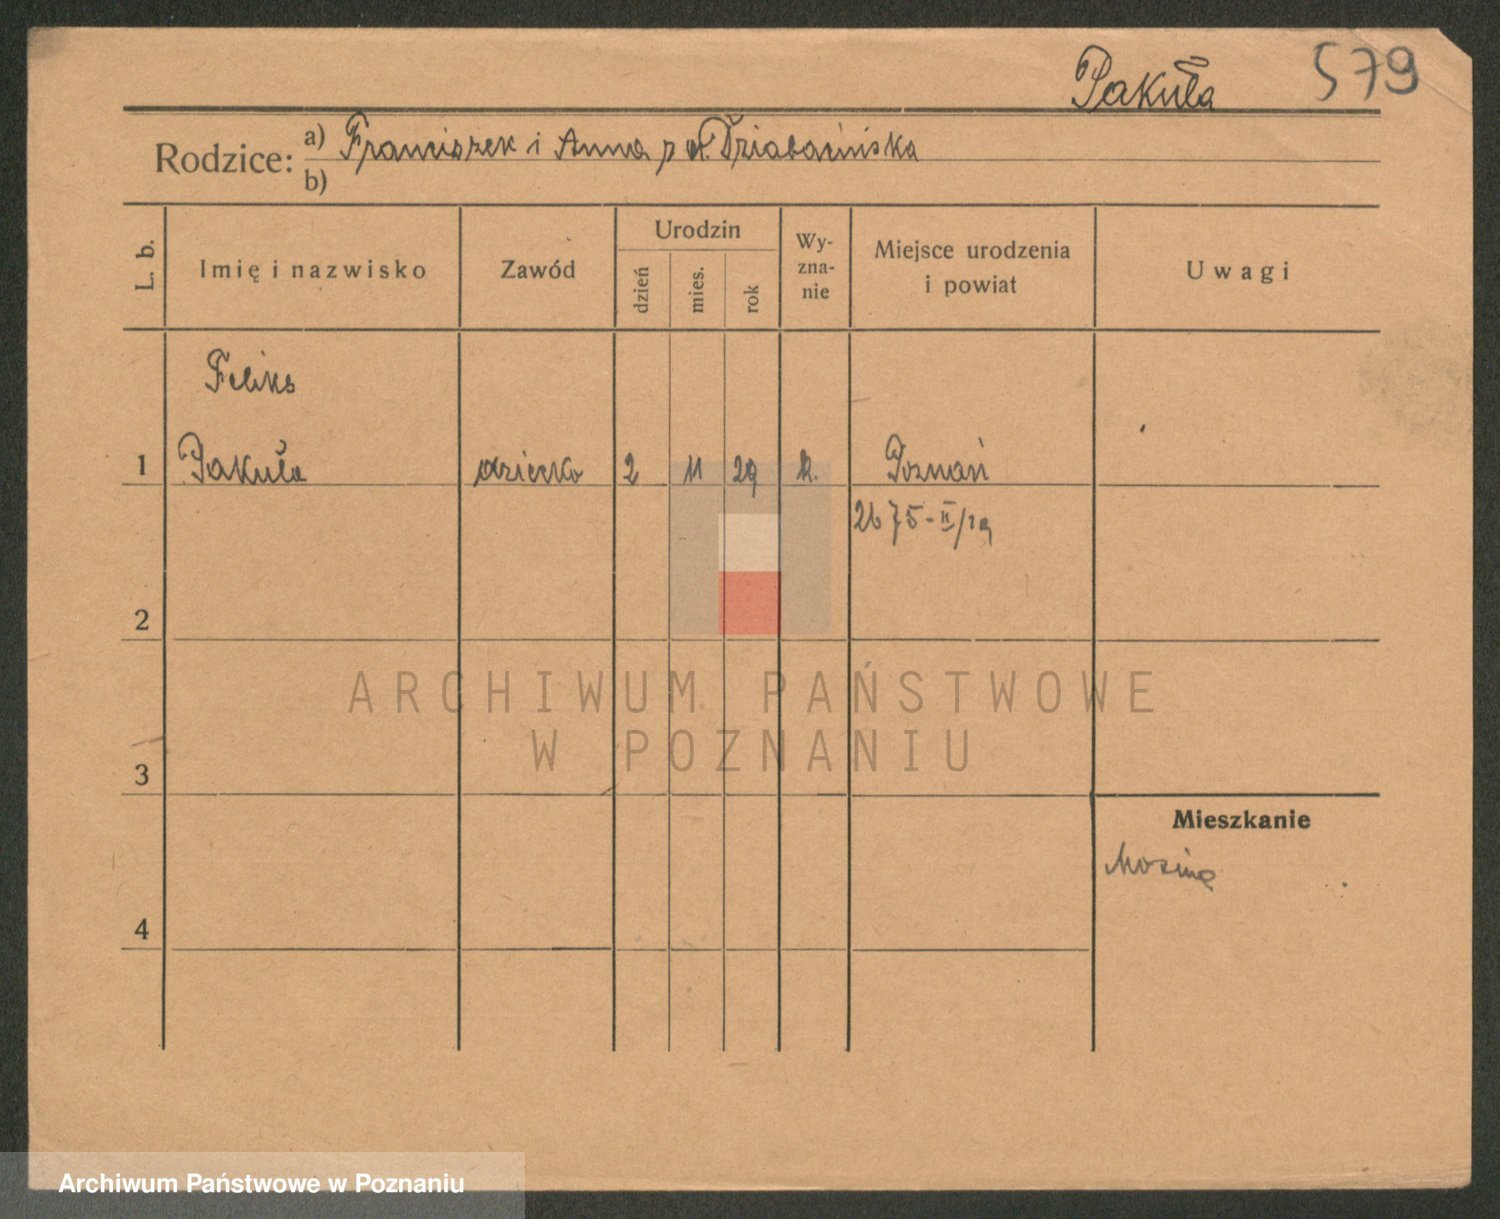 Pakuła 579
Rodzice: a) Franciszek i Anna z d.
b)
L. b.
Imię i nazwisko
Zawód
Urodzin
dzień
mies.
rok
Wy-
zna-
nie
Miejsce urodzenia
i powiat
Uwagi
Feliks
1 Pakuła dziecko 2 11 29 k. Poznań
2675-II/29
2
ARCHIWUM PAŃSTWOWE
W POZNANIU
3
Mieszkanie
Mosina
4
Archiwum Państwowe w Poznaniu